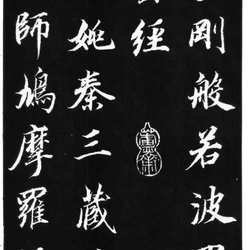 剛般若波
經
姚秦三藏
師鳩摩羅